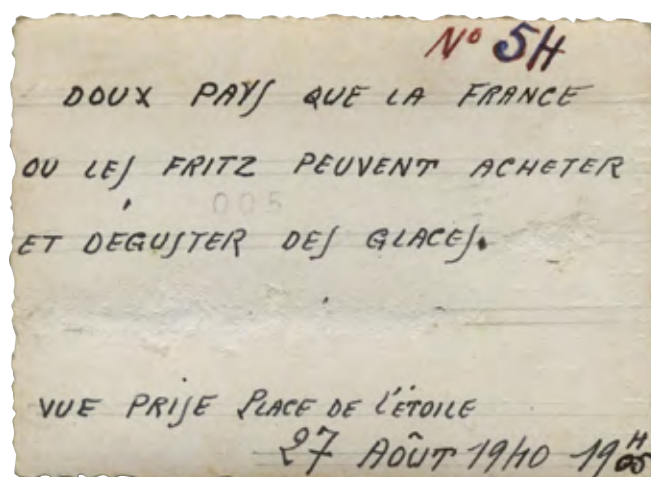 N° 5H
DOUX PAYS QUE LA FRANCE
OU LES FRITZ PEUVENT ACHETER
005
ET DEGUSTER DES GLACES.
VUE PRISE PLACE DE L'ÉTOILE
27 AOÛT 1940 19H05